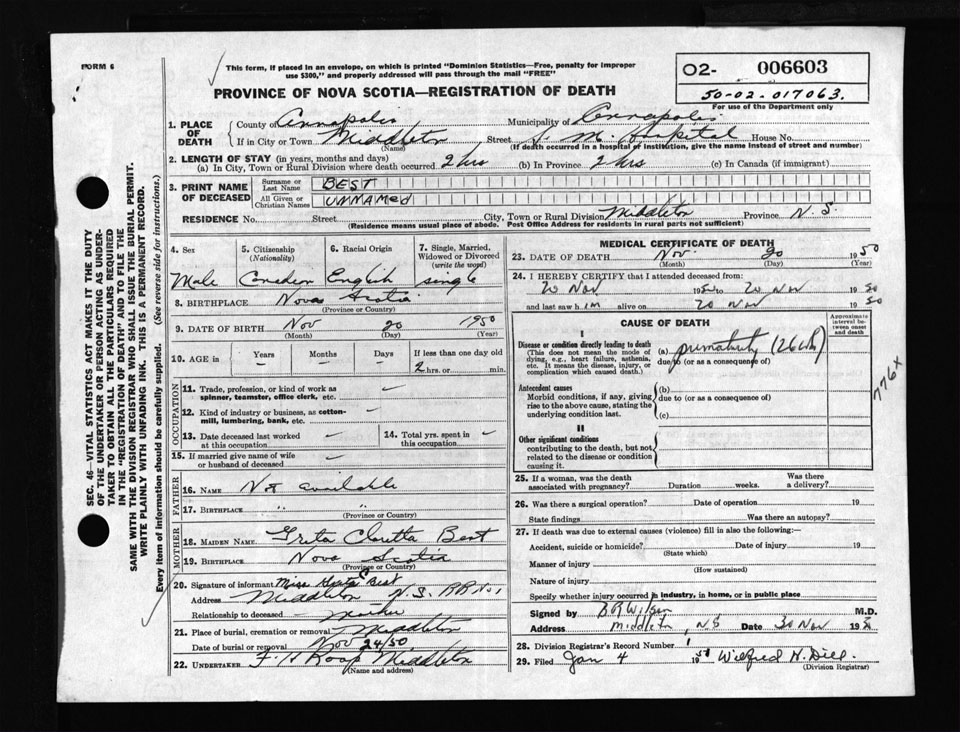 FORM 6
This form, if placed in an envelope, on which is printed "Dominion Statistics—Free, penalty for improper
use $300," and properly addressed will pass through the mail "FREE"
PROVINCE OF NOVA SCOTIA—REGISTRATION OF DEATH
O2- 006603
50-02-017063.
For use of the Department only
SEC. 46—VITAL STATISTICS ACT MAKES IT THE DUTY
OF THE UNDERTAKER OR PERSON ACTING AS UNDER-
TAKER TO OBTAIN ALL THE PARTICULARS REQUIRED
IN THE "REGISTRATION OF DEATH" AND TO FILE THE
SAME WITH THE DIVISION REGISTRAR WHO SHALL ISSUE THE BURIAL PERMIT.
WRITE PLAINLY WITH UNFADING INK. THIS IS A PERMANENT RECORD.
Every item of information should be carefully supplied. (See reverse side for instructions.)
1. PLACE OF DEATH
County of Annapolis Municipality of Annapolis
If in City or Town Middleton Street S. M. Hospital House No.
(Name) (If death occurred in a hospital or institution, give the name instead of street and number)
2. LENGTH OF STAY (in years, months and days)
(a) In City, Town or Rural Division where death occurred 2 hrs (b) In Province 2 hrs (c) In Canada (if immigrant)
3. PRINT NAME OF DECEASED
Surname or Last Name BEST
All Given or Christian Names UNNAMED
RESIDENCE No. Street City, Town or Rural Division Middleton Province N. S.
(Residence means usual place of abode. Post Office Address for residents in rural parts not sufficient)
4. Sex Male
5. Citizenship (Nationality) Canadian
6. Racial Origin English
7. Single, Married, Widowed or Divorced (write the word) single
8. BIRTHPLACE Nova Scotia
(Province or Country)
9. DATE OF BIRTH Nov 20 1950
(Month) (Day) (Year)
10. AGE in Years Months Days If less than one day old
2 hrs. or min.
OCCUPATION
11. Trade, profession, or kind of work as
spinner, teamster, office clerk, etc.
12. Kind of industry or business, as cotton-
mill, lumbering, bank, etc.
13. Date deceased last worked
at this occupation
14. Total yrs. spent in
this occupation
15. If married give name of wife
or husband of deceased
FATHER
16. NAME Not available
17. BIRTHPLACE " "
(Province or Country)
MOTHER
18. MAIDEN NAME Greta Claretta Best
19. BIRTHPLACE Nova Scotia
(Province or Country)
20. Signature of informant Miss Greta C Best
Address Middleton N.S. RR No 1
Relationship to deceased Mother
21. Place of burial, cremation or removal Middleton
Date of burial or removal Nov 24/50
22. UNDERTAKER F. H Roop Middleton
(Name and address)
MEDICAL CERTIFICATE OF DEATH
23. DATE OF DEATH Nov. 20 1950
(Month) (Day) (Year)
24. I HEREBY CERTIFY that I attended deceased from:
20 Nov 1950 to 20 Nov 1950
and last saw him alive on 20 Nov 1950
CAUSE OF DEATH
Approximate interval between onset and death
I
Disease or condition directly leading to death
(This does not mean the mode of
dying, e.g., heart failure, asthenia,
etc. It means the disease, injury, or
complication which caused death.)
(a) prematurity (26 wk)
due to (or as a consequence of)
Antecedent causes
Morbid conditions, if any, giving
rise to the above cause, stating the
underlying condition last.
(b)
due to (or as a consequence of)
(c)
II
Other significant conditions
contributing to the death, but not
related to the disease or condition
causing it.
776x
25. If a woman, was the death
associated with pregnancy? Duration weeks. Was there
a delivery?
26. Was there a surgical operation? Date of operation 19
State findings Was there an autopsy?
27. If death was due to external causes (violence) fill in also the following:
Accident, suicide or homicide? Date of injury 19
(State which)
Manner of injury
(How sustained)
Nature of injury
Specify whether injury occurred in industry, in home, or in public place
Signed by B R Wilson M.D.
Address Middleton, N S Date 30 Nov 1950
28. Division Registrar's Record Number
29. Filed Jan 4 19 Wilfred H. Dill.
(Division Registrar)